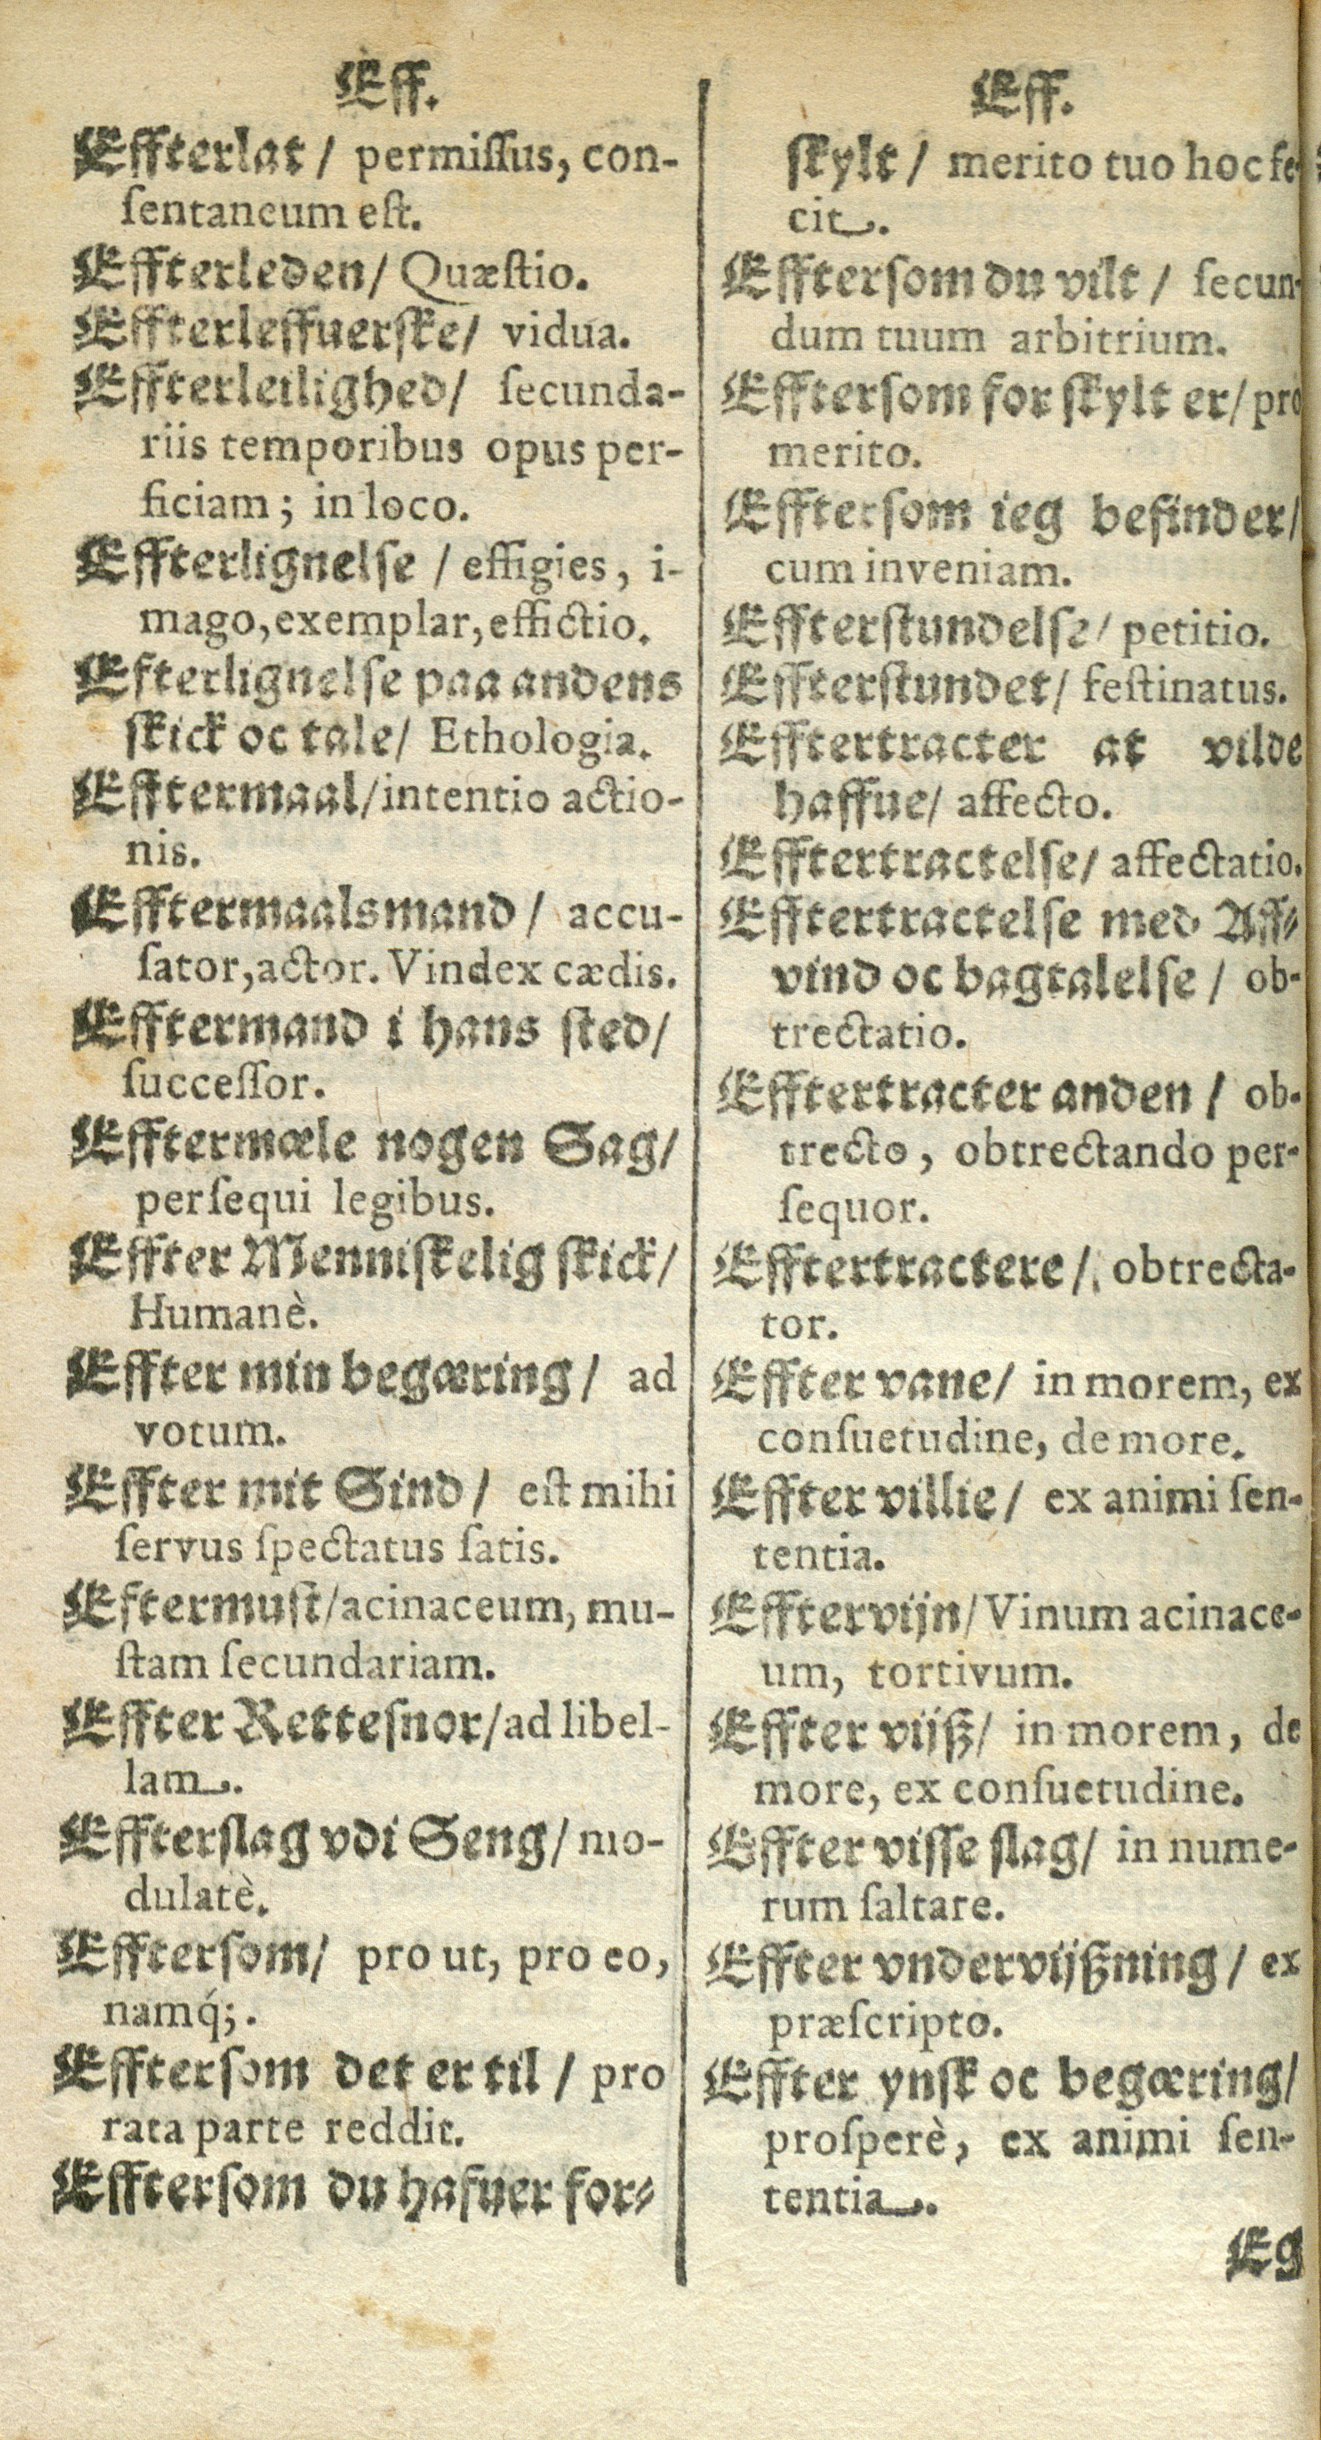 Eff.
Effterlat / permiſſus, con-
ſentaneum eſt.
Effterleden / Quæſtio.
Effterleffuerſke / vidua.
Effterleilighed / ſecunda-
riis temporibus opus per-
ficiam ; in loco.
Effterlignelſe / effigies, i-
mago, exemplar, effictio.
Efterlignelſe paa andens
ſkick oc tale / Ethologia.
Efftermaal / intentio actio-
nis.
Efftermaalsmand / accu-
ſator, actor. Vindex cædis.
Efftermand i hans ſted /
ſucceſſor.
Efftermæle nogen Sag /
perſequi legibus.
Effter Menniſkelig ſkick /
Humanè.
Effter min begæring / ad
votum.
Effter mit Sind / eſt mihi
ſervus ſpectatus ſatis.
Eftermuſt / acinaceum, mu-
ſtam ſecundariam.
Effter Retteſnor / ad libel-
lam.
Effterſlag vdi Seng / mo-
dulatè.
Effterſom / pro ut, pro eo,
namq́;.
Effterſom det er til / pro
rata parte reddit.
Effterſom du hafuer for-
Eff.
ſkylt / merito tuo hoc fe-
cit.
Effterſom du vilt / ſecun-
dum tuum arbitrium.
Effterſom for ſkylt er / pro
merito.
Effterſom ieg befinder /
cum inveniam.
Effterſtundelſe / petitio.
Effterſtundet / feſtinatus.
Efftertracter at vilde
haffue / affecto.
Efftertractelſe / affectatio.
Efftertractelſe med Aff-
vind oc bagtalelſe / ob-
trectatio.
Efftertracter anden / ob-
trecto, obtrectando per-
ſequor.
Efftertractere / obtrecta-
tor.
Effter vane / in morem, ex
conſuetudine, de more.
Effter villie / ex animi ſen-
tentia.
Efftervijn / Vinum acinace-
um, tortivum.
Effter vijß / in morem, de
more, ex conſuetudine.
Effter viſſe ſlag / in nume-
rum ſaltare.
Effter vndervijßning / ex
præſcripto.
Effter ynſk oc begæring /
proſperè, ex animi ſen-
tentia.
Eg